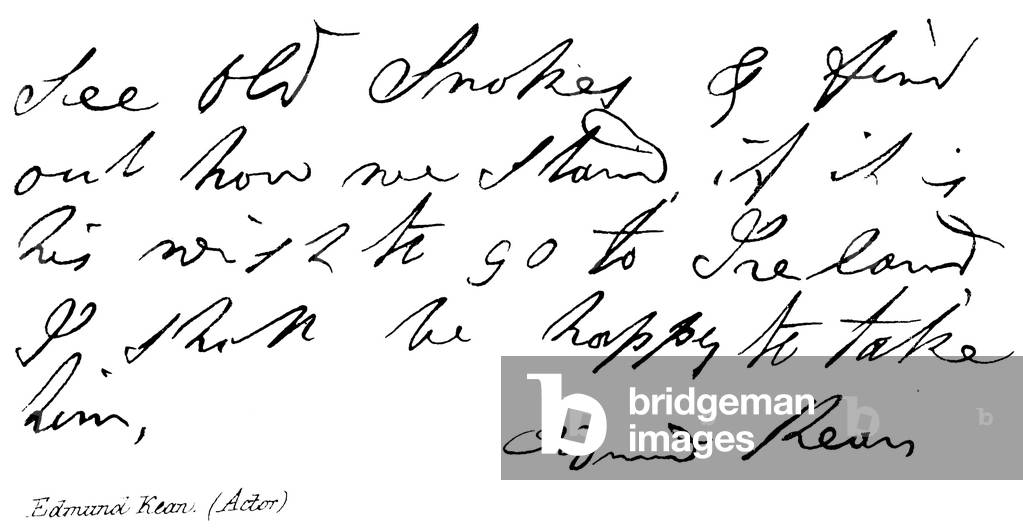 See old Snokes & find
out how we stand, if it is
his wish to go to Ireland
I shall be happy to take
him,
Edmund Kean
Edmund Kean. (Actor)
b bridgeman images
b
b